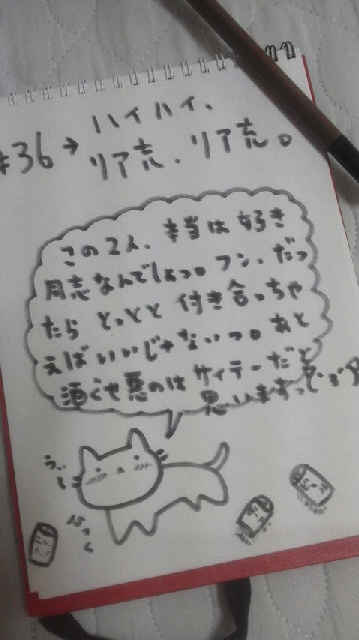 #36→ハイハイ、
リア売、リア売。
この2人、本当は好き
同志なんでしょっ。フン、だっ
たら とっとと 付き合っちゃ
えばいいじゃないっ。あと
酒ぐせ悪のはサイテーだと
思いますっ
うぃ
ひっく